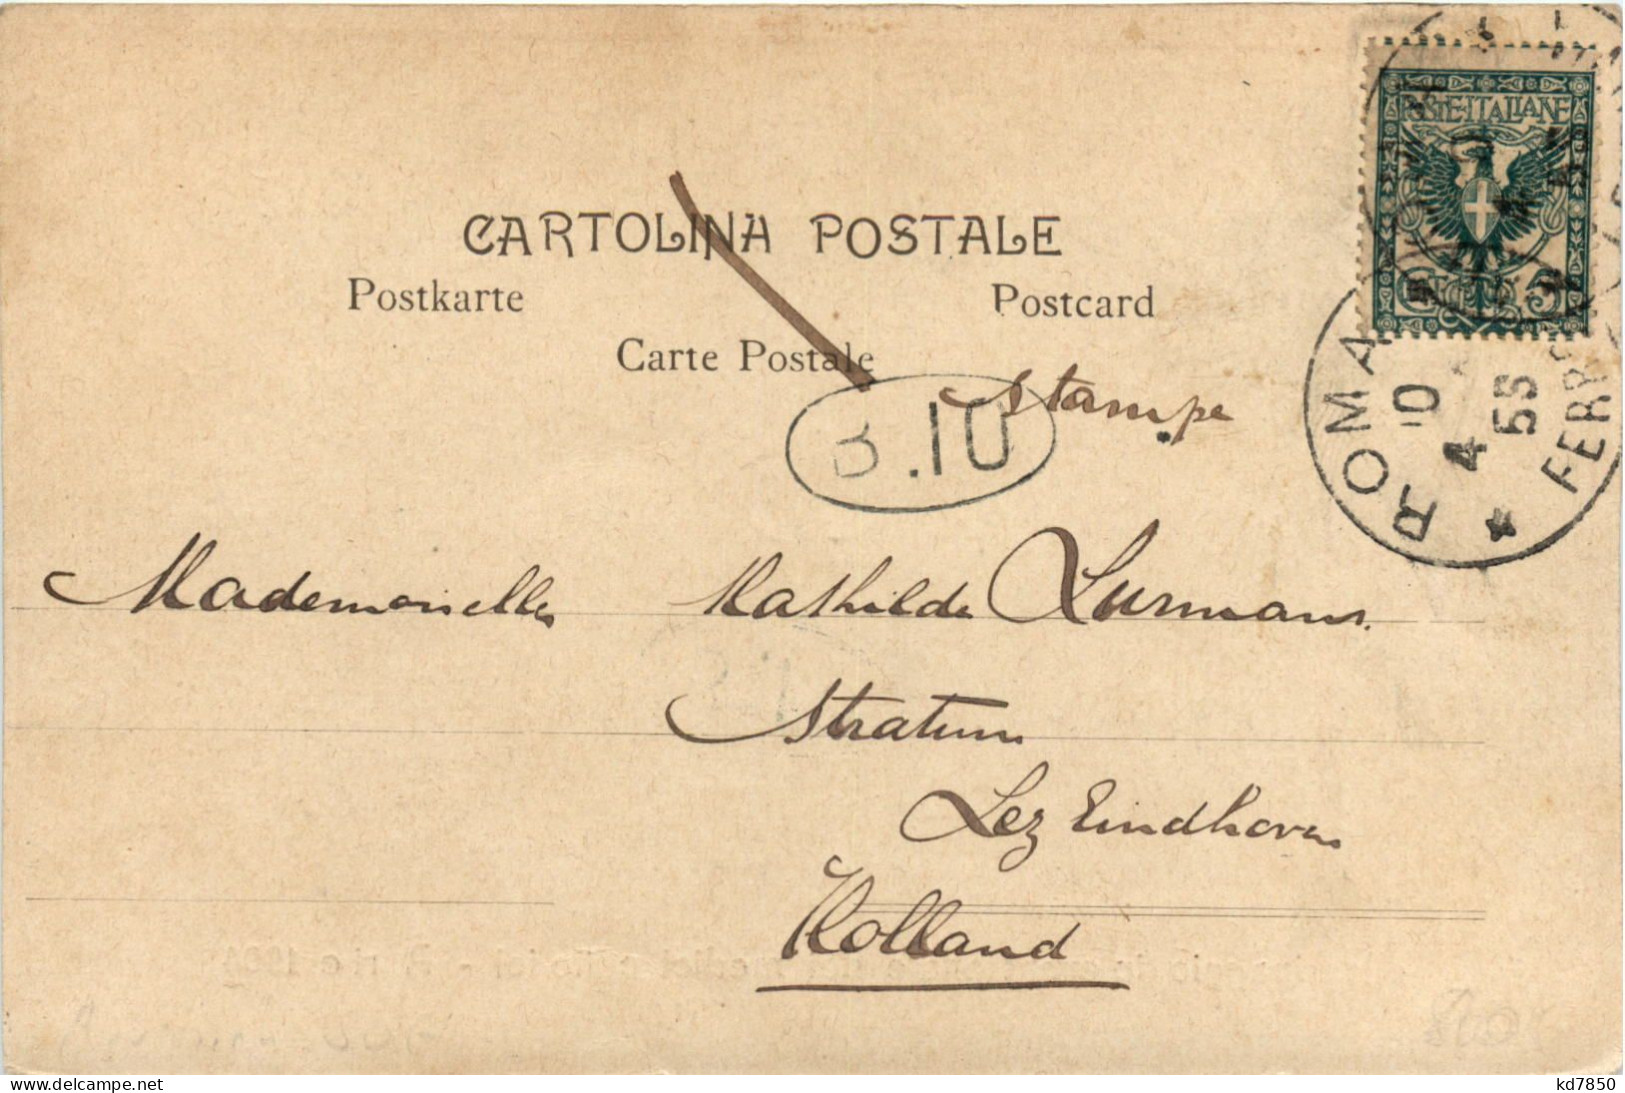 POSTE·ITALIANE
CARTOLINA POSTALE
Postkarte
Postcard
Carte Postale
Stampe
B.10
ROMA
FERR
10
4
55
Mademoiselle Mathilde Lurmans.
Stratum
Lez Eindhoven
Holland
delcampe.net
kd7850